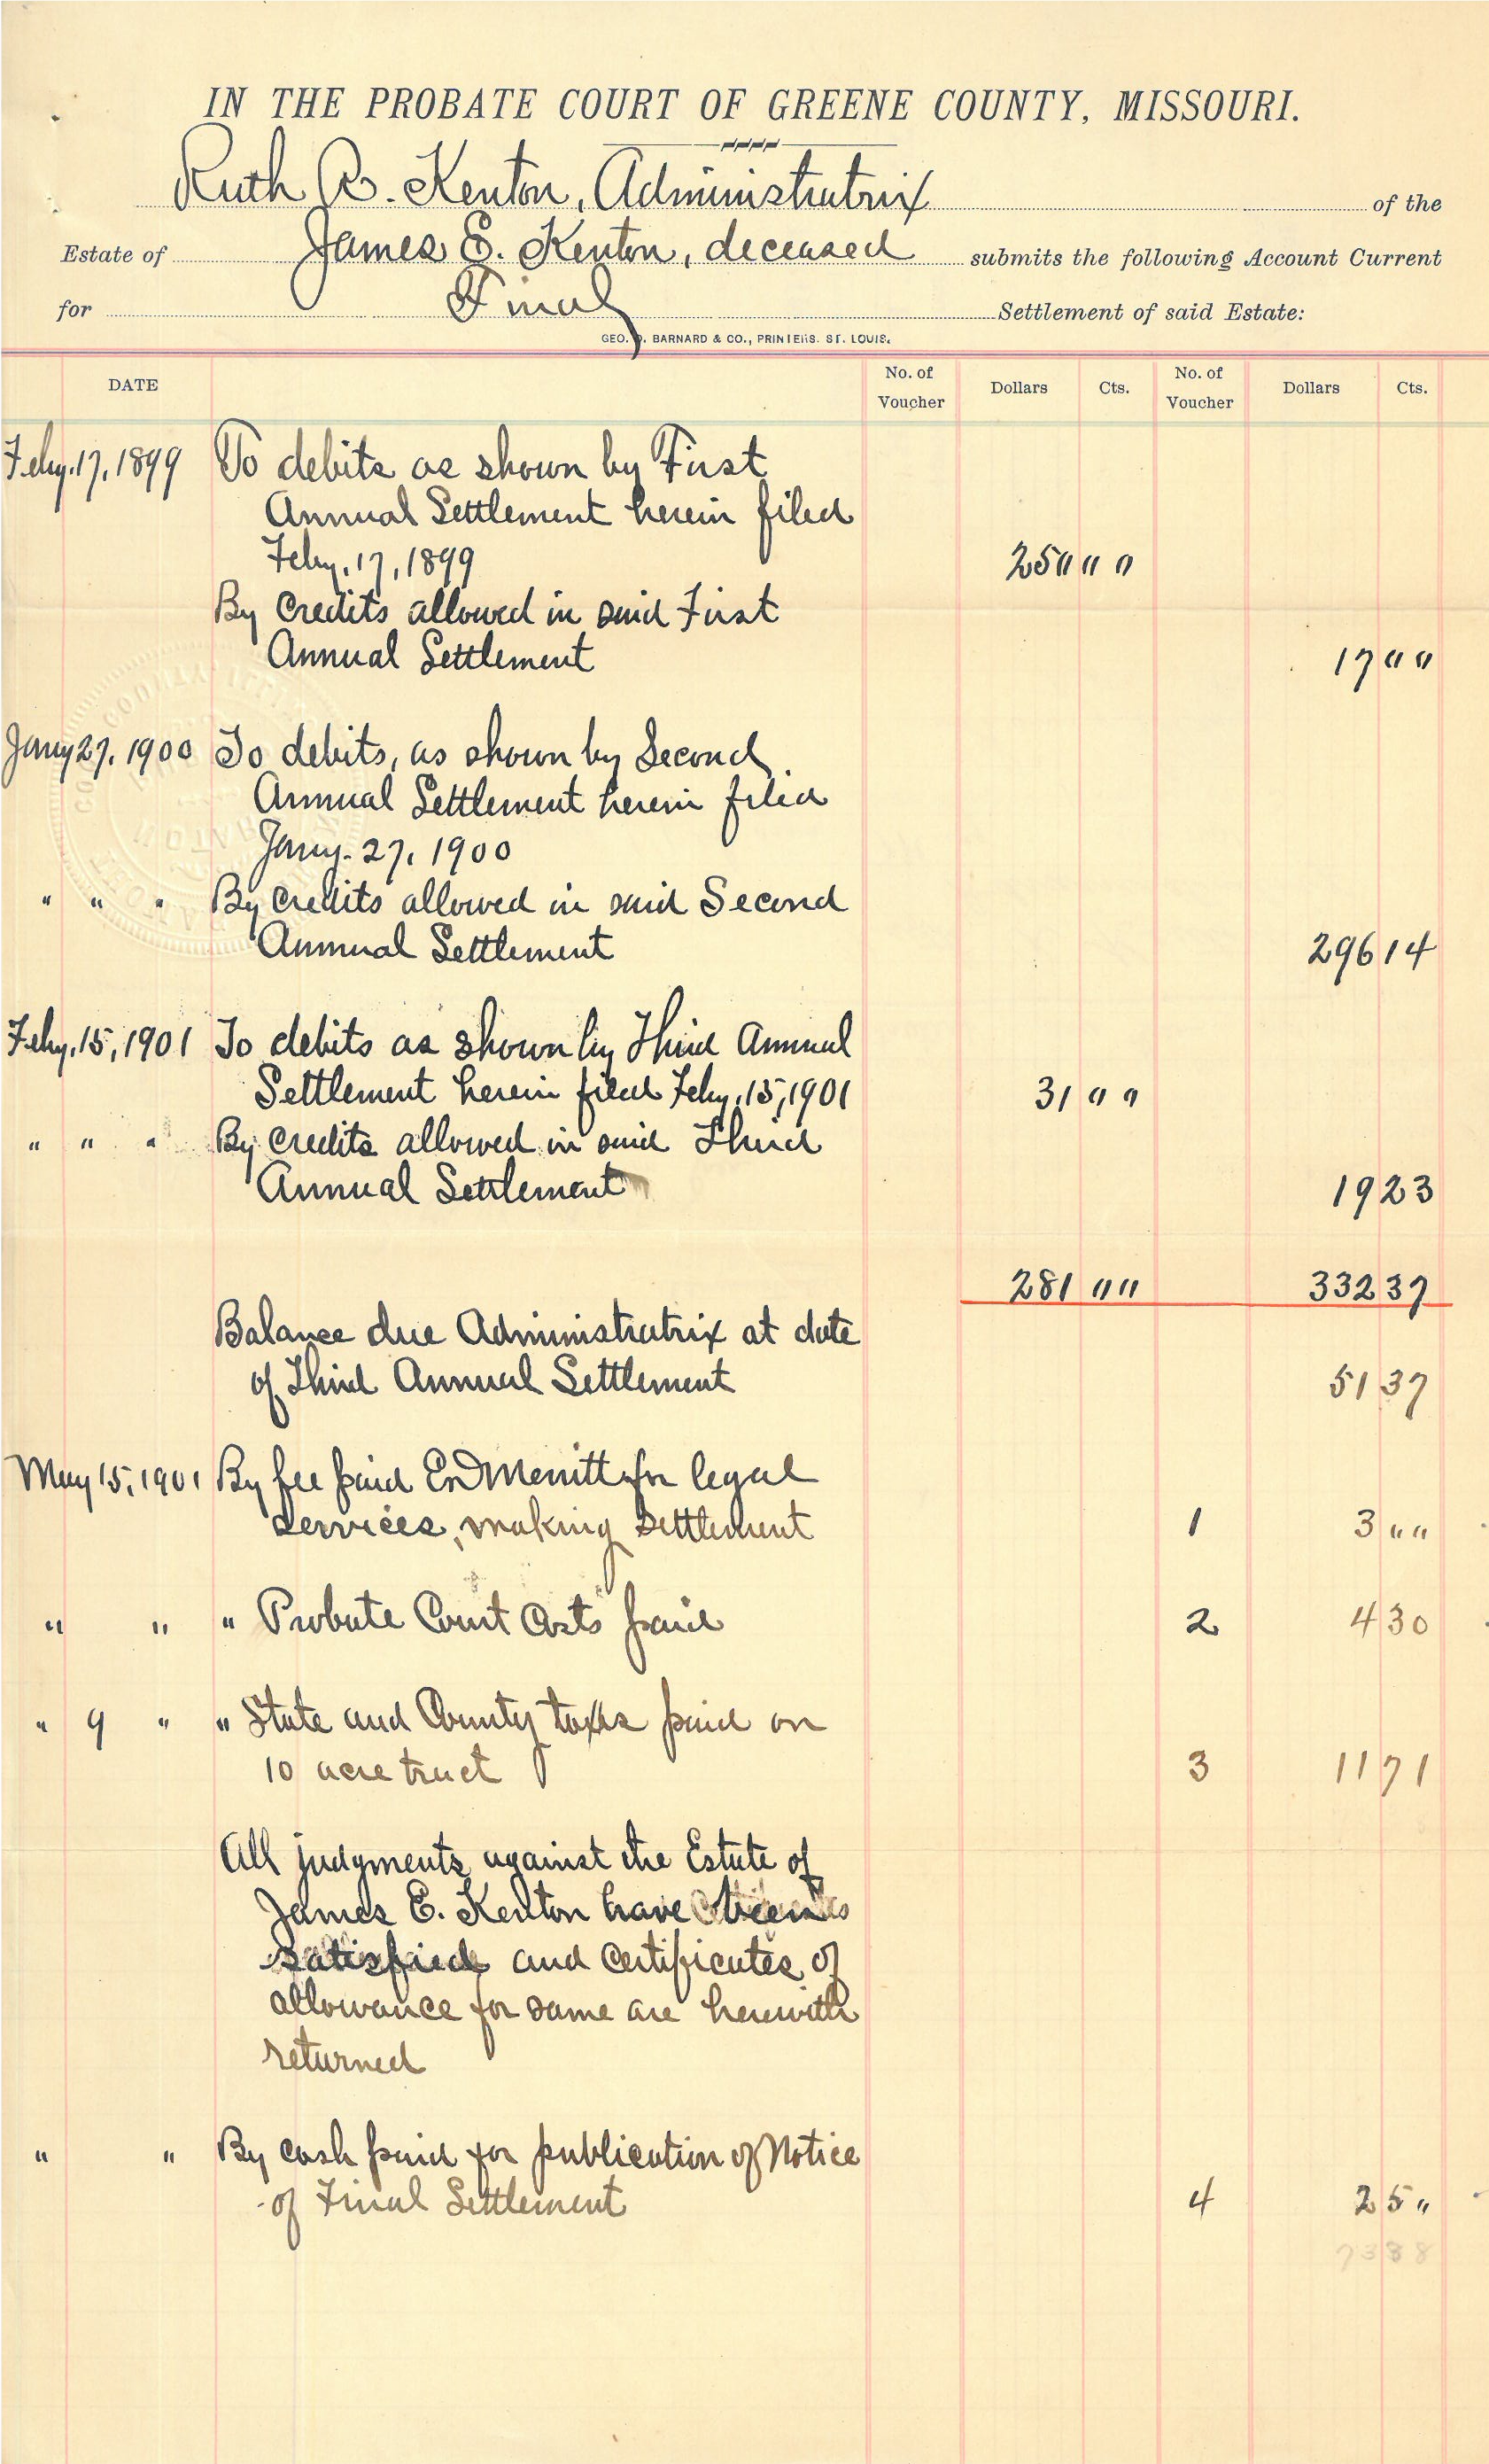 IN THE PROBATE COURT OF GREENE COUNTY, MISSOURI.
Ruth R. Kenton, Administratrix of the
Estate of James E. Kenton, deceased submits the following Account Current
for Final Settlement of said Estate:
GEO. D. BARNARD & CO., PRINTERS. ST. LOUIS.
DATE No. of Voucher Dollars Cts. No. of Voucher Dollars Cts.
Feby. 17, 1899 To debits as shown by First
Annual Settlement herein filed
Feby. 17, 1899 250 " "
By Credits allowed in said First
Annual Settlement 17 " "
Jany 27, 1900 To debits, as shown by Second
Annual Settlement herein filed
Jany. 27, 1900
" " " By Credits allowed in said Second
Annual Settlement 296 14
Feby. 15, 1901 To debits as shown by Third Annual
Settlement herein filed Feby. 15, 1901 31 " "
" " " By Credits allowed in said Third
Annual Settlement 19 23
281 " " 332 37
Balance due Administratrix at date
of Third Annual Settlement 51 37
May 15, 1901 By fee paid Merritt for legal
services, making settlement 1 3 " "
" " " Probate Court Costs paid 2 4 30
" 9 " " State and County taxes paid on
10 acre tract 3 11 71
All judgments against the Estate of
James E. Kenton have been
satisfied and Certificates of
allowance for same are herewith
returned
" " By cash paid for publication of Notice
of Final Settlement 4 2 5 "
73 38